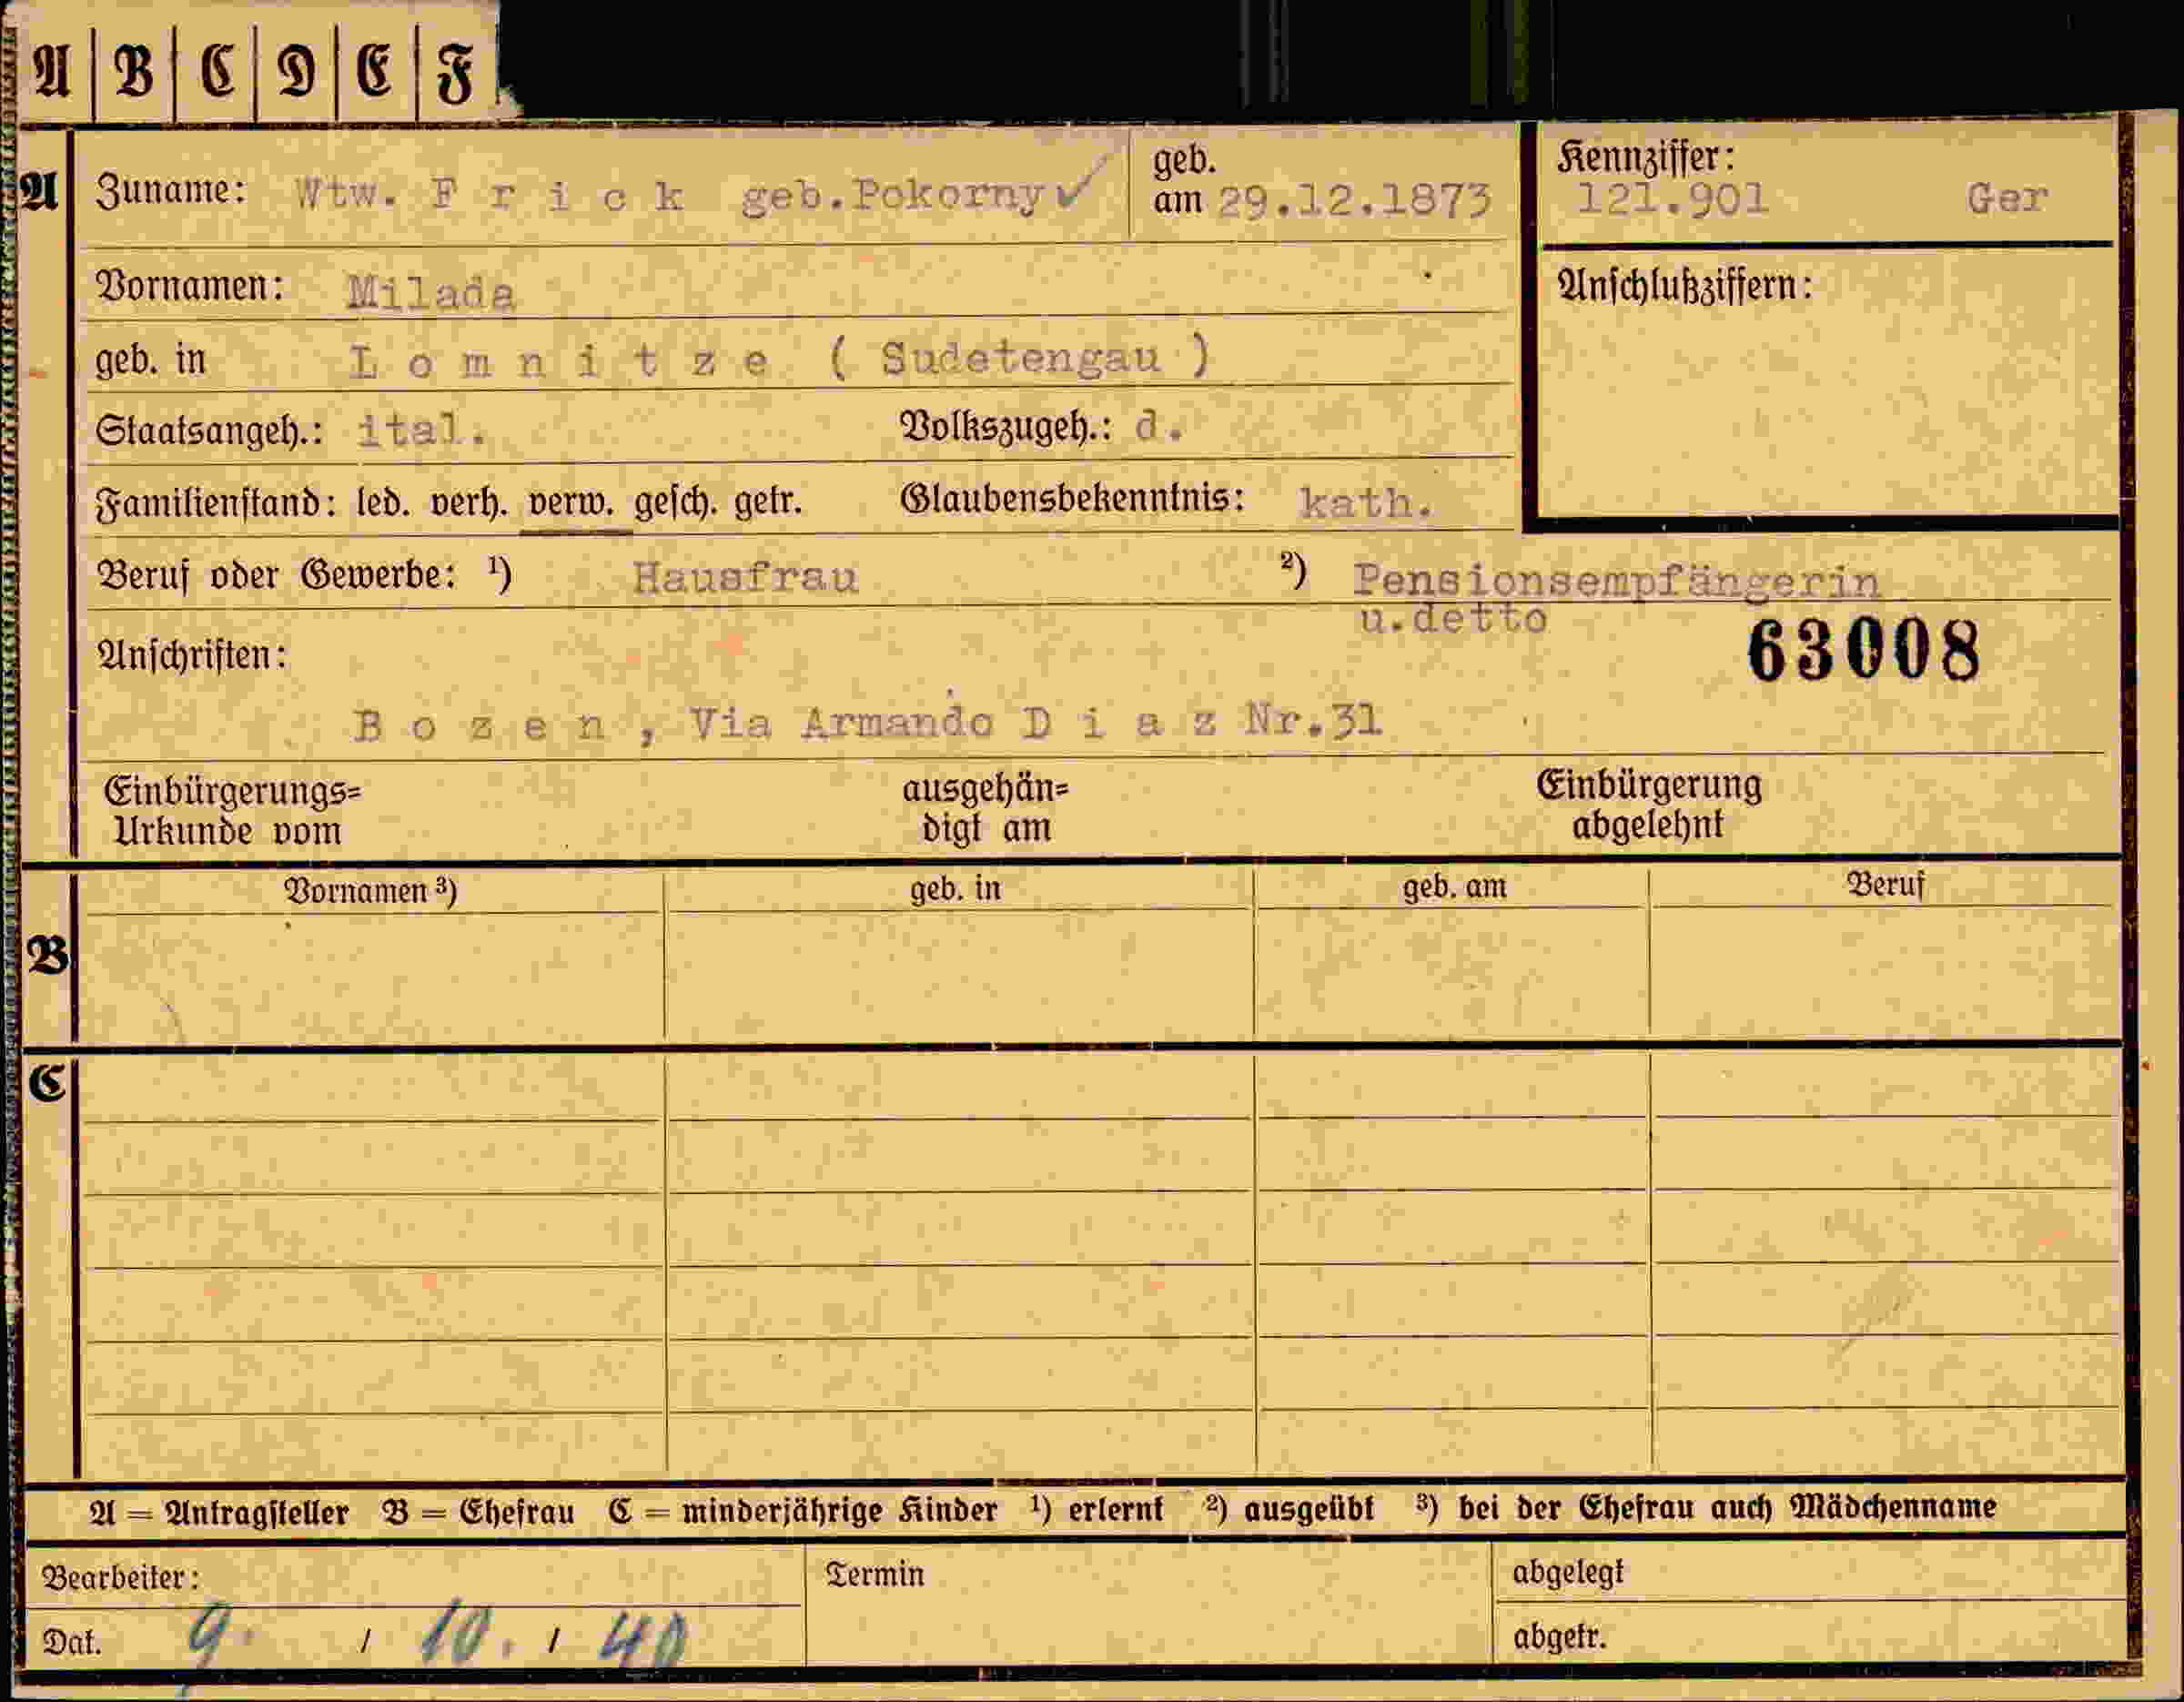 A B C D E F
A Zuname: Wtw. F r i c k geb.Pokorny ✓ geb. am 29.12.1873 Kennziffer: 121.901 Ger
Vornamen: Milada Anschlußziffern:
geb. in L o m n i t z e ( Sudetengau )
Staatsangeh.: ital. Volkszugeh.: d.
Familienstand: led. verh. verw. gesch. getr. Glaubensbekenntnis: kath.
Beruf oder Gewerbe: ¹) Hausfrau ²) Pensionsempfängerin
u.detto
Anschriften: 63008
B o z e n , Via Armando D i a z Nr.31
Einbürgerungs= ausgehän= Einbürgerung
Urkunde vom digt am abgelehnt
Vornamen ³) geb. in geb. am Beruf
B
C
A = Antragsteller B = Ehefrau C = minderjährige Kinder ¹) erlernt ²) ausgeübt ³) bei der Ehefrau auch Mädchenname
Bearbeiter: Termin abgelegt
Dat. 9. / 10. / 40 abgetr.